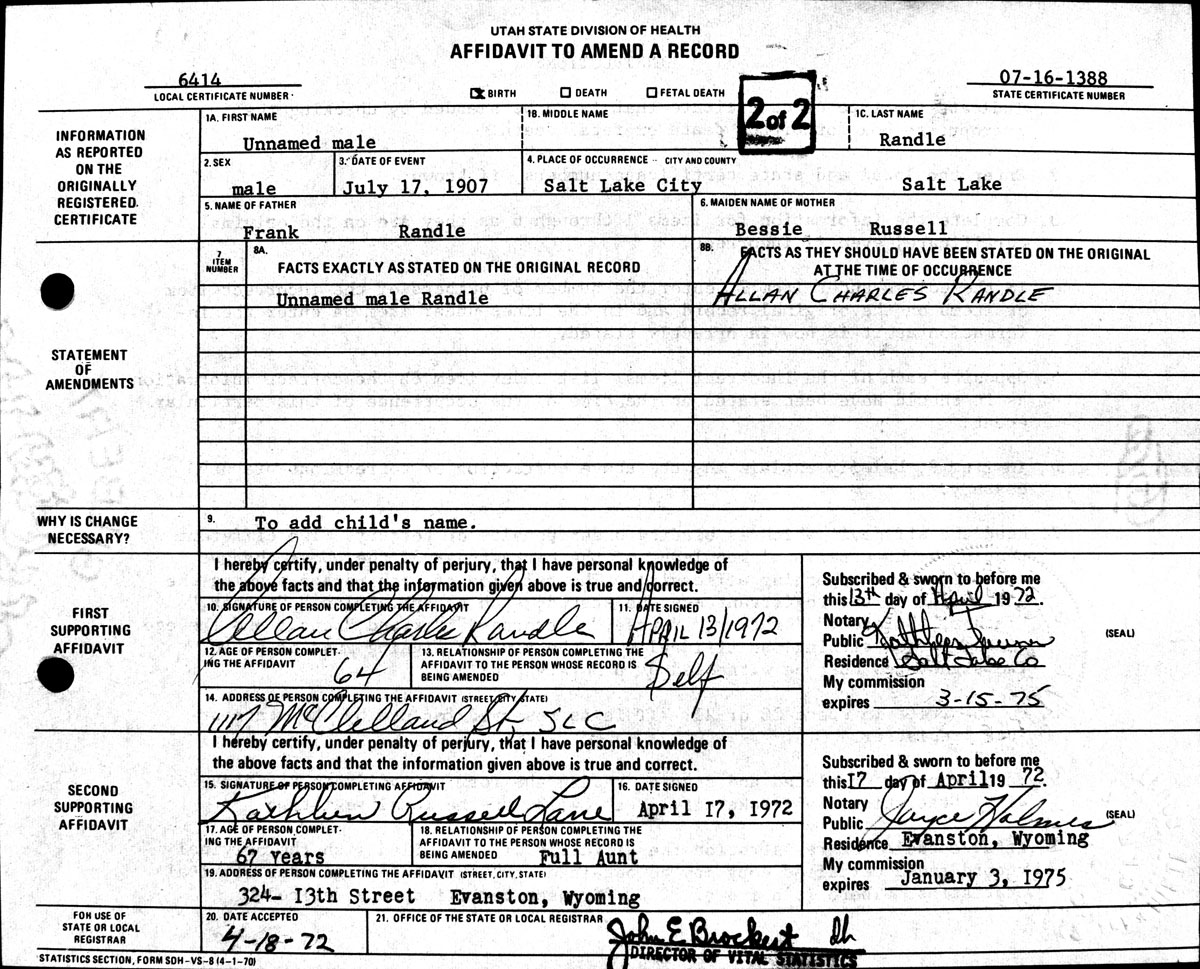 UTAH STATE DIVISION OF HEALTH
AFFIDAVIT TO AMEND A RECORD
6414
LOCAL CERTIFICATE NUMBER
BIRTH DEATH FETAL DEATH
2 of 2
07-16-1388
STATE CERTIFICATE NUMBER
INFORMATION AS REPORTED ON THE ORIGINALLY REGISTERED CERTIFICATE
1A. FIRST NAME 1B. MIDDLE NAME 1C. LAST NAME
Unnamed male Randle
2. SEX 3. DATE OF EVENT 4. PLACE OF OCCURRENCE - CITY AND COUNTY
male July 17, 1907 Salt Lake City Salt Lake
5. NAME OF FATHER 6. MAIDEN NAME OF MOTHER
Frank Randle Bessie Russell
STATEMENT OF AMENDMENTS
7 ITEM NUMBER
8A. FACTS EXACTLY AS STATED ON THE ORIGINAL RECORD
8B. FACTS AS THEY SHOULD HAVE BEEN STATED ON THE ORIGINAL
AT THE TIME OF OCCURRENCE
Unnamed male Randle ALLAN CHARLES RANDLE
WHY IS CHANGE NECESSARY?
9. To add child's name.
FIRST SUPPORTING AFFIDAVIT
I hereby certify, under penalty of perjury, that I have personal knowledge of
the above facts and that the information given above is true and correct.
10. SIGNATURE OF PERSON COMPLETING THE AFFIDAVIT 11. DATE SIGNED
Allan Charles Randle APRIL 13/1972
12. AGE OF PERSON COMPLETING THE AFFIDAVIT
64
13. RELATIONSHIP OF PERSON COMPLETING THE AFFIDAVIT TO THE PERSON WHOSE RECORD IS BEING AMENDED
Self
14. ADDRESS OF PERSON COMPLETING THE AFFIDAVIT (STREET, CITY, STATE)
1117 McClelland St, SLC
Subscribed & sworn to before me
this 13th day of April 1972.
Notary
Public Kathleen
Residence Salt Lake Co
My commission
expires 3-15-75
(SEAL)
SECOND SUPPORTING AFFIDAVIT
I hereby certify, under penalty of perjury, that I have personal knowledge of
the above facts and that the information given above is true and correct.
15. SIGNATURE OF PERSON COMPLETING AFFIDAVIT 16. DATE SIGNED
Kathleen Russell Lane April 17, 1972
17. AGE OF PERSON COMPLETING THE AFFIDAVIT
67 Years
18. RELATIONSHIP OF PERSON COMPLETING THE AFFIDAVIT TO THE PERSON WHOSE RECORD IS BEING AMENDED
Full Aunt
19. ADDRESS OF PERSON COMPLETING THE AFFIDAVIT (STREET, CITY, STATE)
324- 13th Street Evanston, Wyoming
Subscribed & sworn to before me
this 17 day of April 19 72.
Notary
Public Joyce Holmes
Residence Evanston, Wyoming
My commission
expires January 3, 1975
(SEAL)
FOR USE OF STATE OR LOCAL REGISTRAR
20. DATE ACCEPTED 21. OFFICE OF THE STATE OR LOCAL REGISTRAR
4-18-72 John E Brockert dh
DIRECTOR OF VITAL STATISTICS
STATISTICS SECTION, FORM SDH-VS-8 (4-1-70)